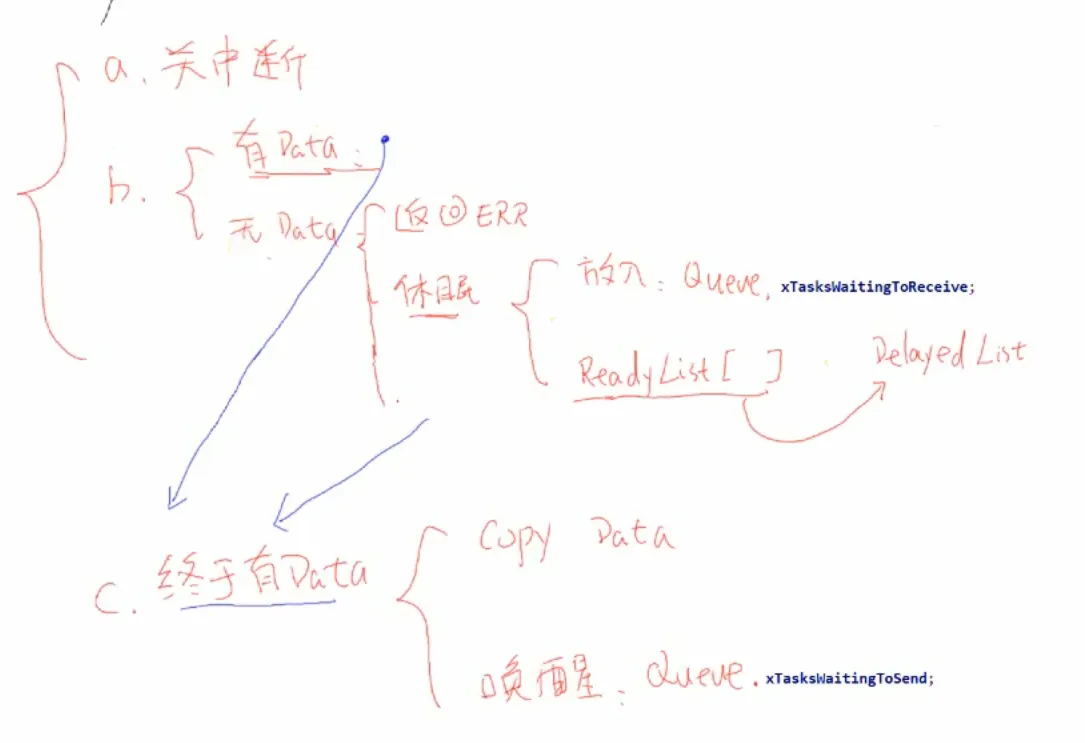 a. 关中断
b. 有Data:
无Data 返回ERR
休眠 放入: Queue. xTasksWaitingToReceive;
ReadyList[ ] DelayedList
c. 终于有Data Copy Data
唤醒: Queue. xTasksWaitingToSend;